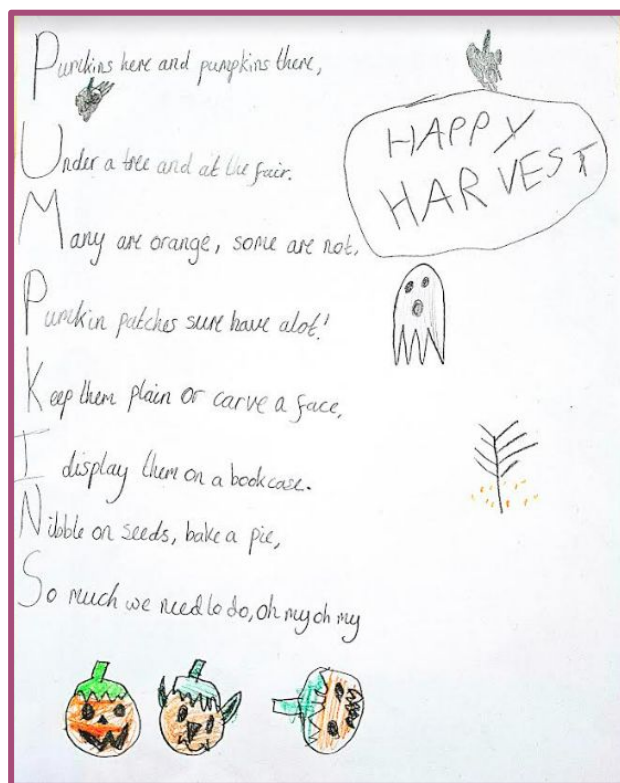 Pumkins here and pumpkins there,
Under a tree and at the fair.
Many are orange, some are not,
Pumkin patches sure have alot!
Keep them plain or carve a face,
I display them on a bookcase.
Nibble on seeds, bake a pie,
So much we need to do, oh my oh my
HAPPY
HARVEST